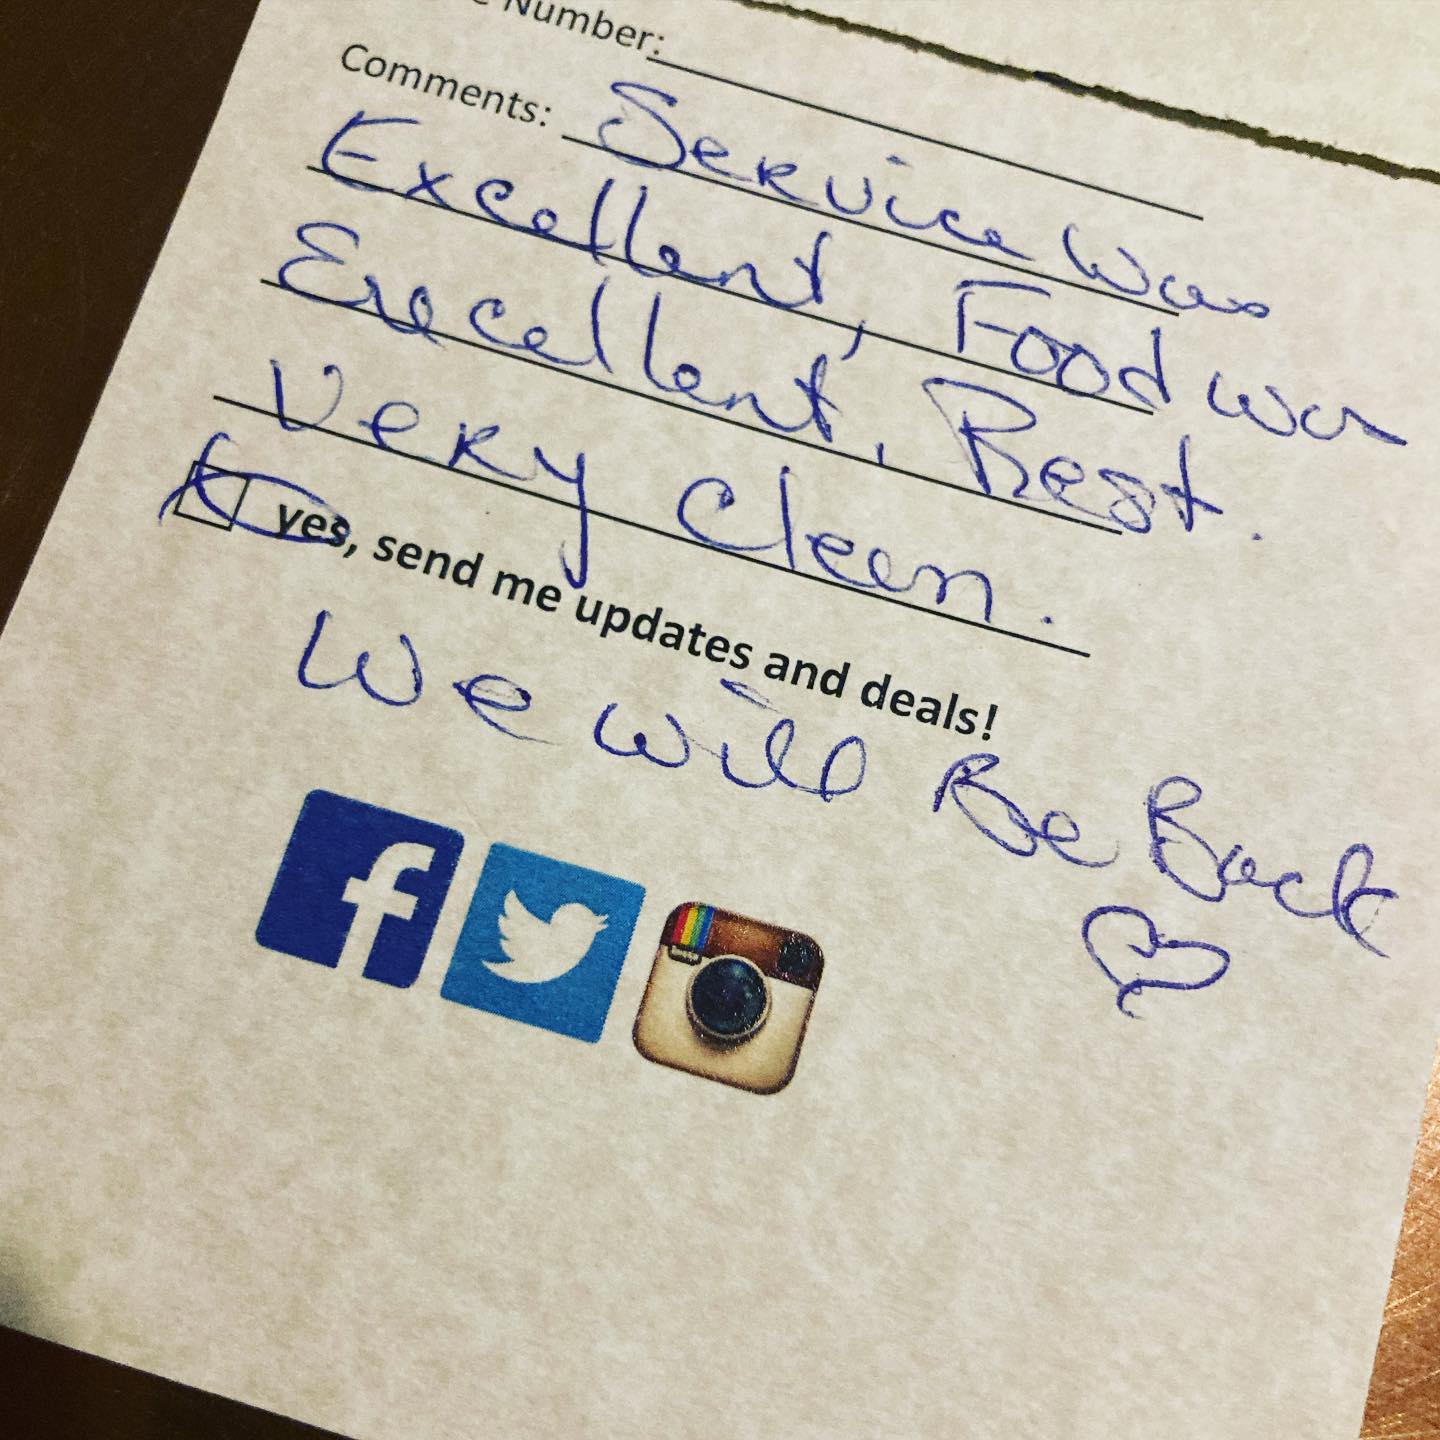 Number:
Comments: Service was
Excellent, Food was
Excellent, Rest.
Very Clean.
yes, send me updates and deals!
We will Be Back